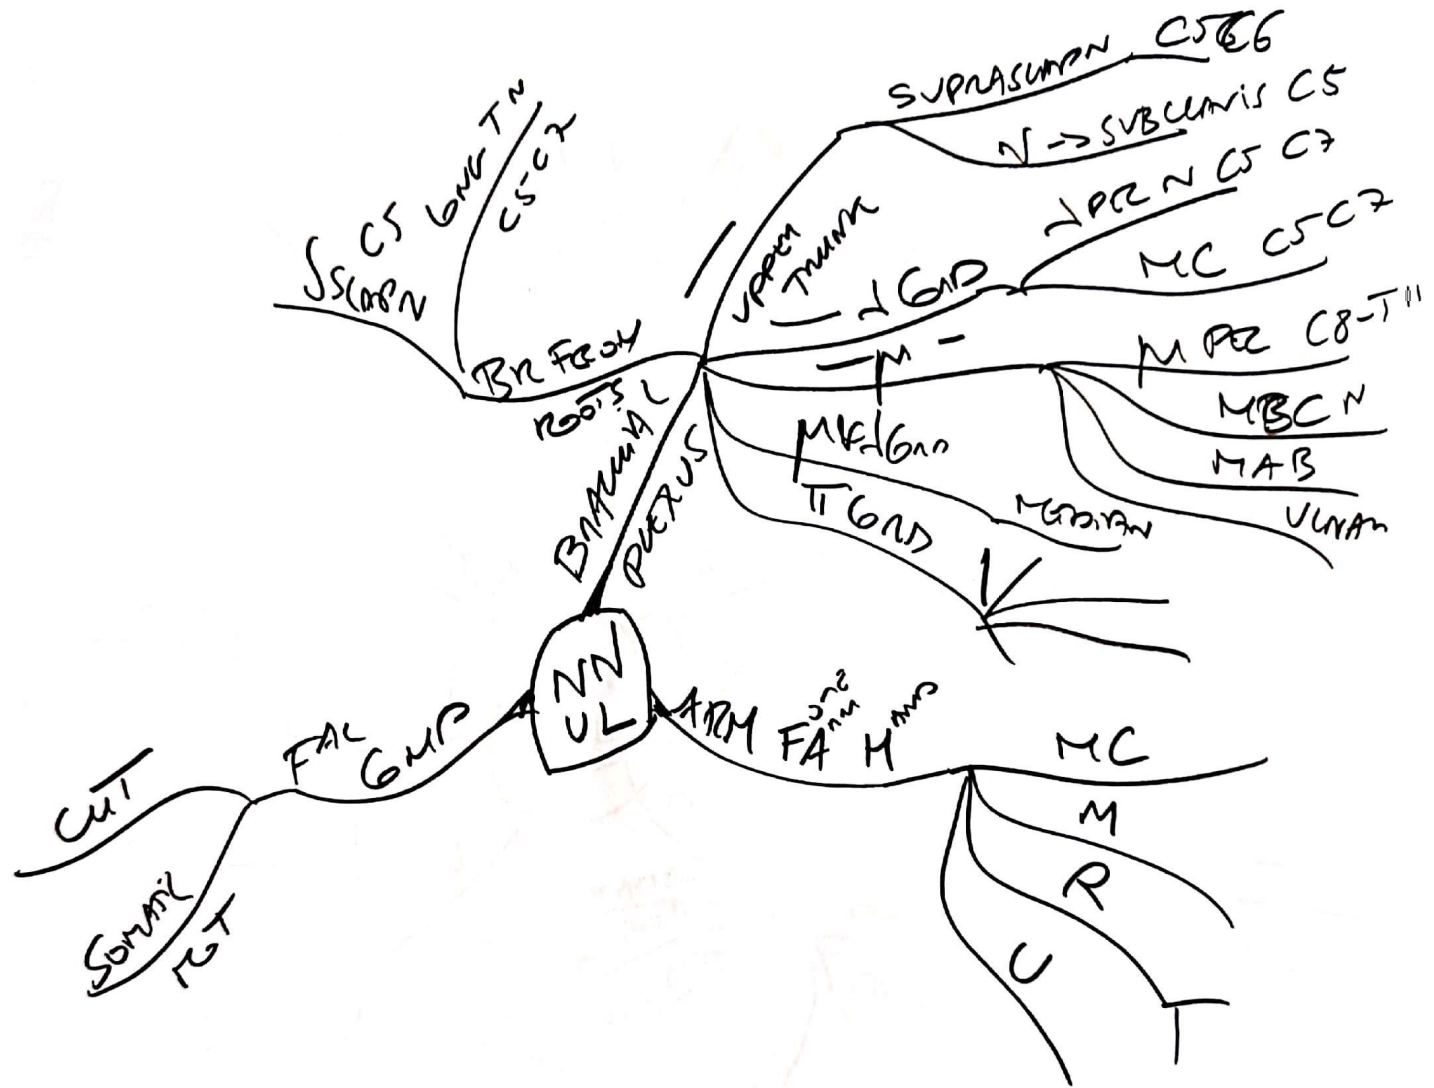 SUPRASCAPN C5 C6
N -> SUBCLAVIS C5
L PEC N C5 C7
MC C5 C7
UPPER
TRUNK
L CORD
M
M PEC C8-T1
MBCN
MAB
ULNAR
M & L CORD
MEDIAN
CORD
LONG TN
C5-C7
C5
SCAPN
BR FROM
ROOTS
BRACHIAL
PLEXUS
NN
UL
ARM FOREARM HAND
MC
M
R
U
FAL
CUT
SOMATIC
MOT